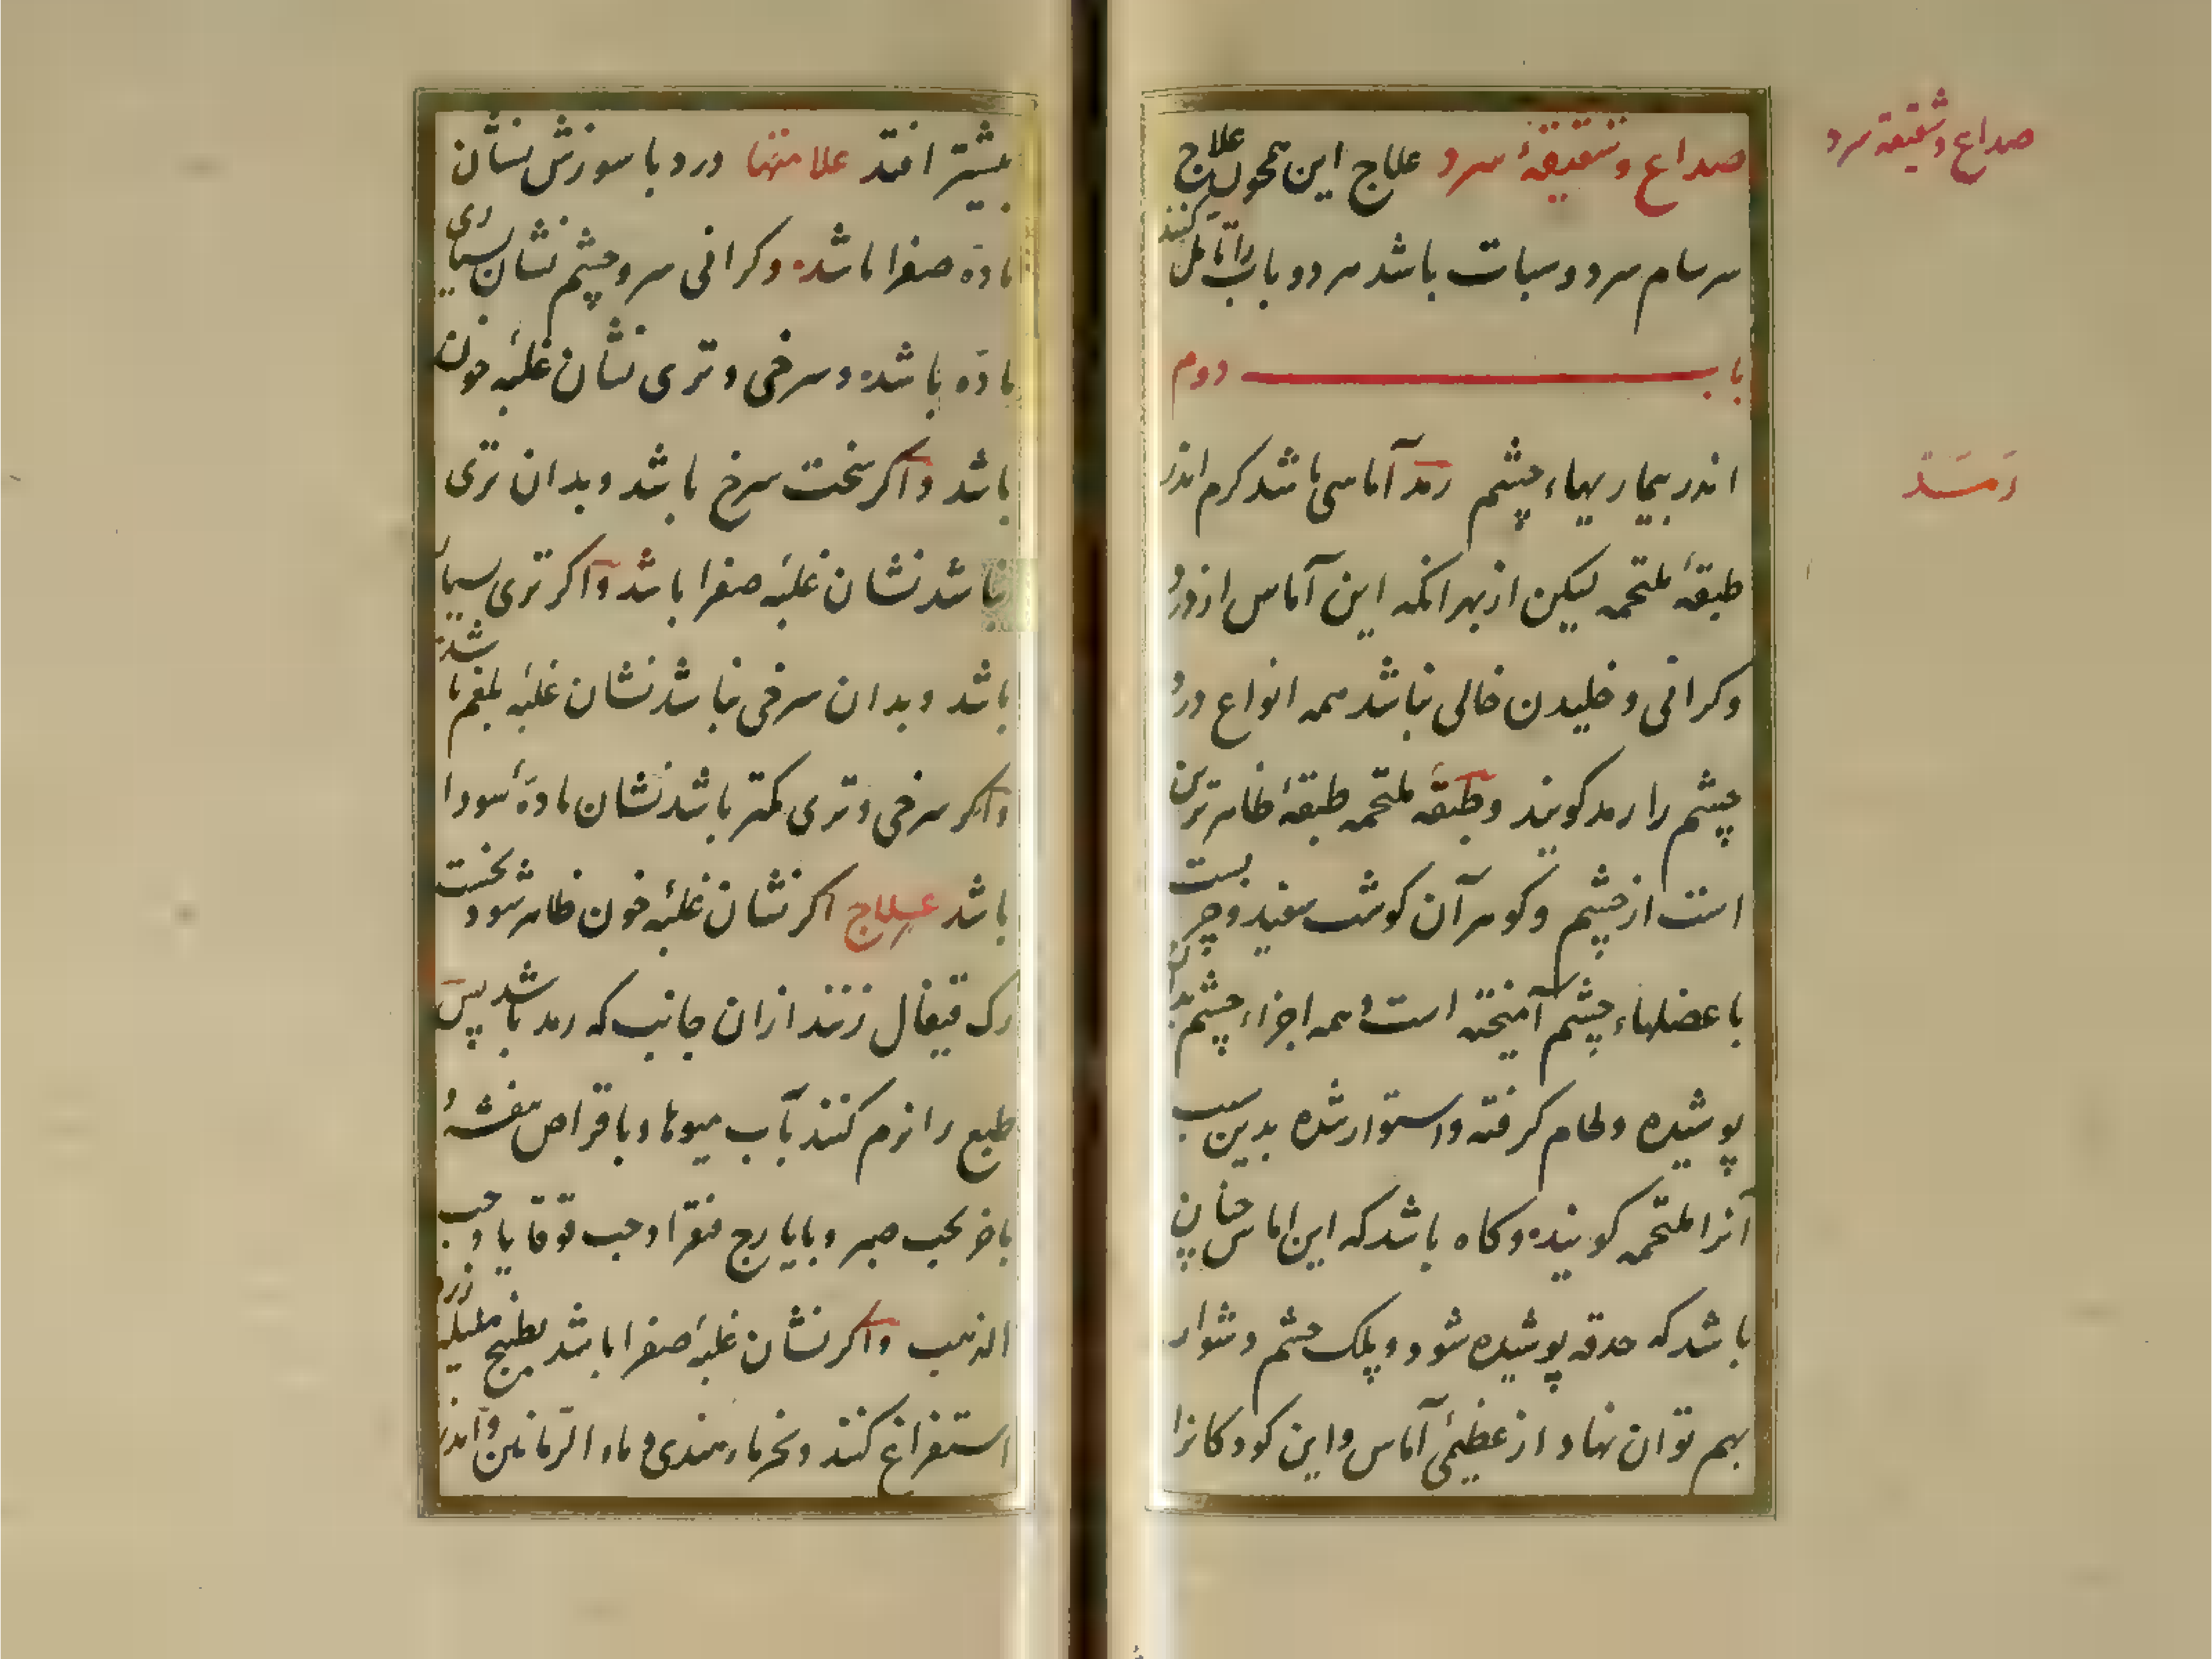 صداع و شقیقهٔ سرد
صداع و شقیقهٔ سرد علاج این همچون علاج
سرسام سرد و سبات باشد هر دو باب را تامل کنند
باب دوم
رمد
اندر بیماریهاء چشم رمد آماسی باشد کرم اندر
طبقهٔ ملتحمه لیکن از بهر انکه این آماس از درد
و کرانی و خلیدن خالی نباشد همه انواع درد
چشم را رمد کویند و طبقهٔ ملتحمه طبقهٔ ظاهرترین
است از چشم و کوهر آن کوشت سفید و چربست
با عضلهاء چشم آمیخته است و همه اجزاء چشم بدان
پوشیده و لحام کرفته و استوار شده بدین سبب
آنرا ملتحمه کویند و کاه باشد که این اماس چنان
باشد که حدقه پوشیده شود و پلک چشم دشوار
بهم توان نهاد از عظیمی آماس و این کودکانرا
بیشتر افتد علامتها درد با سوزش نشان
مادّه صفرا باشد و کرانی سر و چشم نشان بسیاری
مادّه باشد و سرخی و تری نشان غلبهٔ خون
باشد و اکر سخت سرخ باشد و بدان تری
نباشد نشان غلبهٔ صفرا باشد و اکر تری بسیار
باشد و بدان سرخی نباشد نشان غلبهٔ بلغم باشد
و اکر سرخی و تری کمتر باشد نشان مادّهٔ سودا
باشد علاج اکر نشان غلبهٔ خون ظاهر شود نخست
رک قیفال زنند ازان جانب که رمد باشد پس
طبع را نرم کنند بآب میوها و باقراص بنفشه و
باخر بحب صبر و بایارج فیقرا و حب قوقایا و حب
الذهب و اکر نشان غلبهٔ صفرا باشد بطبیخ هلیله زرد
استفراغ کنند و خرماء هندی و ماء الرّمانین و اندر